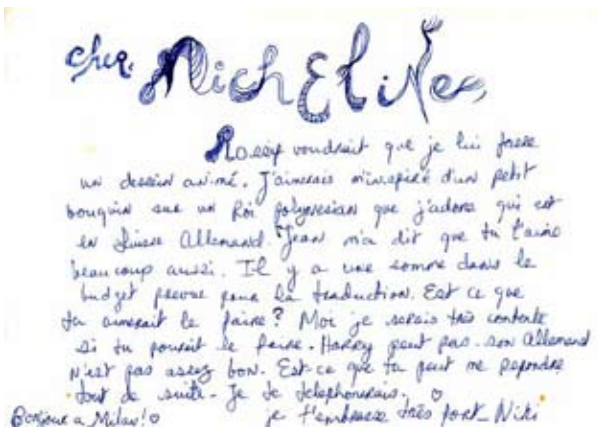 cher. MichElines,
voudrait que je lui fasse
un dessin animé. J'aimerais m'inspiré d'un petit
bouquin sur un Roi polynesian que j'adore qui est
en Suisse Allemand. Jean m'a dit que tu l'aime
beaucoup aussi. Il y a une somme dans le
budget prevue pour la traduction. Est ce que
tu aimerait le faire? Moi je serais très contente
si tu pourait le faire. Harry peut pas. son Allemand
n'est pas assez bon. Est-ce que tu peut me repondre
tout de suite. Je te telephonerais. ♡
Bonjour a Milan! ♡ je t'embrasse très fort_ Niki